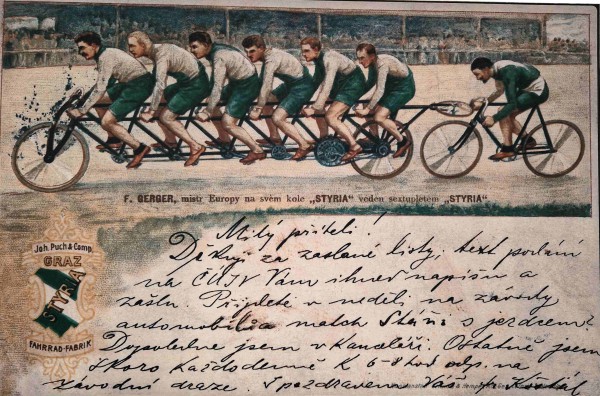 F. GERGER, mistr Europy na svém kole „STYRIA“ veden sextupletem „STYRIA“
Joh. Puch & Comp.
GRAZ
STYRIA
FAHRRAD-FABRIK
Milý příteli!
Děkuji za zaslané listy; text podání
na ČÚJV Vám ihned napíšu a
zašlu. Přijdete v neděli na závody
automobilů a match Stáni s jezdcem?
Dopoledne jsem v kanceláři. Ostatně jsem
skoro každodenně k 6-8 hod. odp. na
závodní dráze. S pozdravem Váš